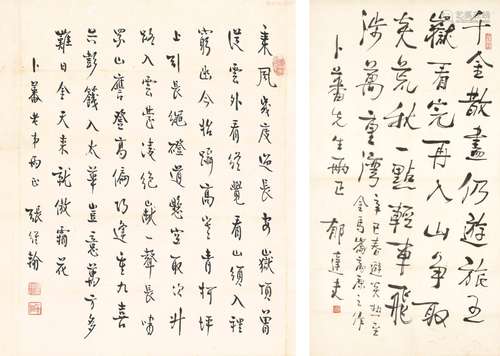 千金散盡仍遊旅五
嶽看完再入山爭取
炎荒秋一點輕車飛
涉萬重灣辛巳春遊
金馬崙高原之作
卜蕃先生兩正 郁達夫
乘風幾度過長安嶽頂曾
從雲外看終覺看山須入裡
窮幽今始躋高峯青柯坪
上引長繩磴道懸空取次升
路入雲叢淩絕巘一聲長嘯
眾山譍登高偏巧逢重九喜
彭籛入太華豈意萬方多
難日金天來就傲霜花
卜蕃兩正 張維翰